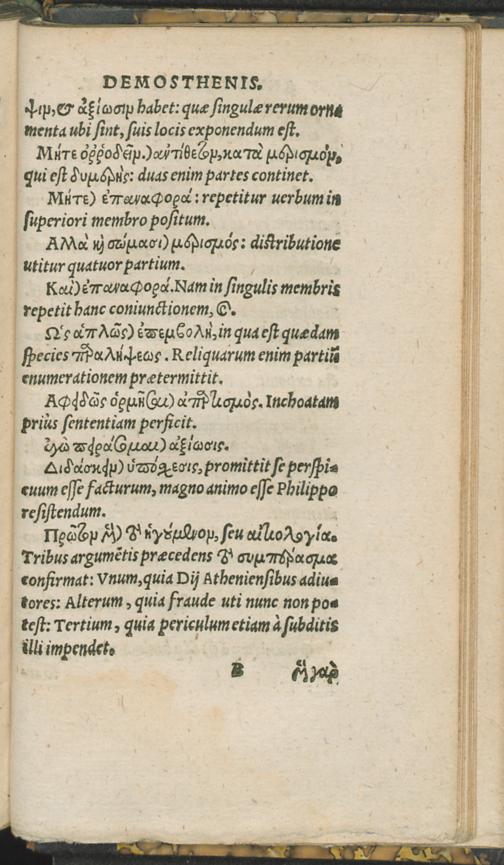 DEMOSTHENIS.
ψιμ, & ἀξίωσιμ habet: quæ singulæ rerum orna=
menta ubi sint, suis locis exponendum est.
Μήτε ὀρρωδεῖμ.) ἀντίθετομ, κατὰ μερισμόμ,
qui est διμερής: duas enim partes continet.
Μήτε) ἐπαναφορά: repetitur uerbum in
superiori membro positum.
Αλλὰ καὶ σώμασι) μερισμός: distributione
utitur quatuor partium.
Καὶ) ἐπαναφορά. Nam in singulis membris
repetit hanc coniunctionem, &.
Ως ἁπλῶς) ἐπεμβολή, in qua est quædam
species παραλήψεως. Reliquarum enim partiū
enumerationem prætermittit.
ὁρμῆσαι) Inchoatam
prius sententiam perficit.
ἐγὼ πειράσομαι) ἀξίωσις.
Διδάσκειμ) ὑπόσχεσις, promittit se perspi=
cuum esse facturum, magno animo esse Philippo
resistendum.
Πρῶτομ μὲμ) τὸ ἡγούμενομ, seu αἰτιολογία.
Tribus argumētis præcedens τὸ συμπέρασμα
confirmat: Vnum, quia Dij Atheniensibus adiu=
tores: Alterum, quia fraude uti nunc non po=
test: Tertium, quia periculum etiam à subditis
illi impendet.
B γὰρ